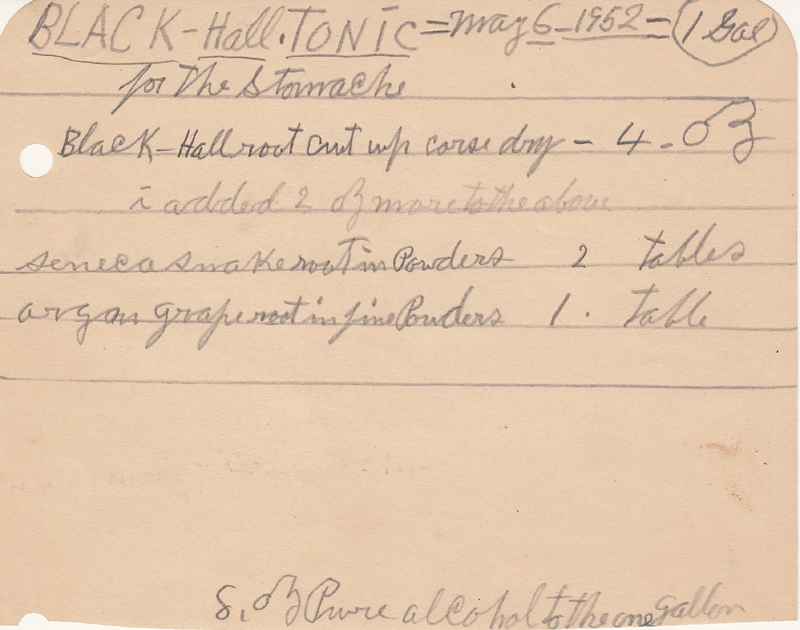 BLACK-Hall. TONIC = May 6-1952 = 1 Gal
for the Stomache
Black-Hall root cut up corse dry - 4 - oz
i added 2 oz more to the above
seneca snake root in Powders 2 tables
argon grape root in fine Powders 1. table
8. oz Pure alcohol to the one gallon